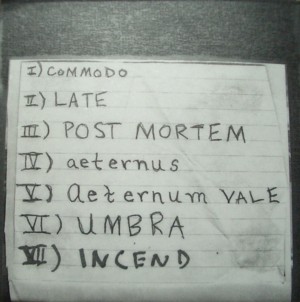 I) COMMODO
II) LATE
III) POST MORTEM
IV) aeternus
V) aeternum VALE
VI) UMBRA
VII) INCEND